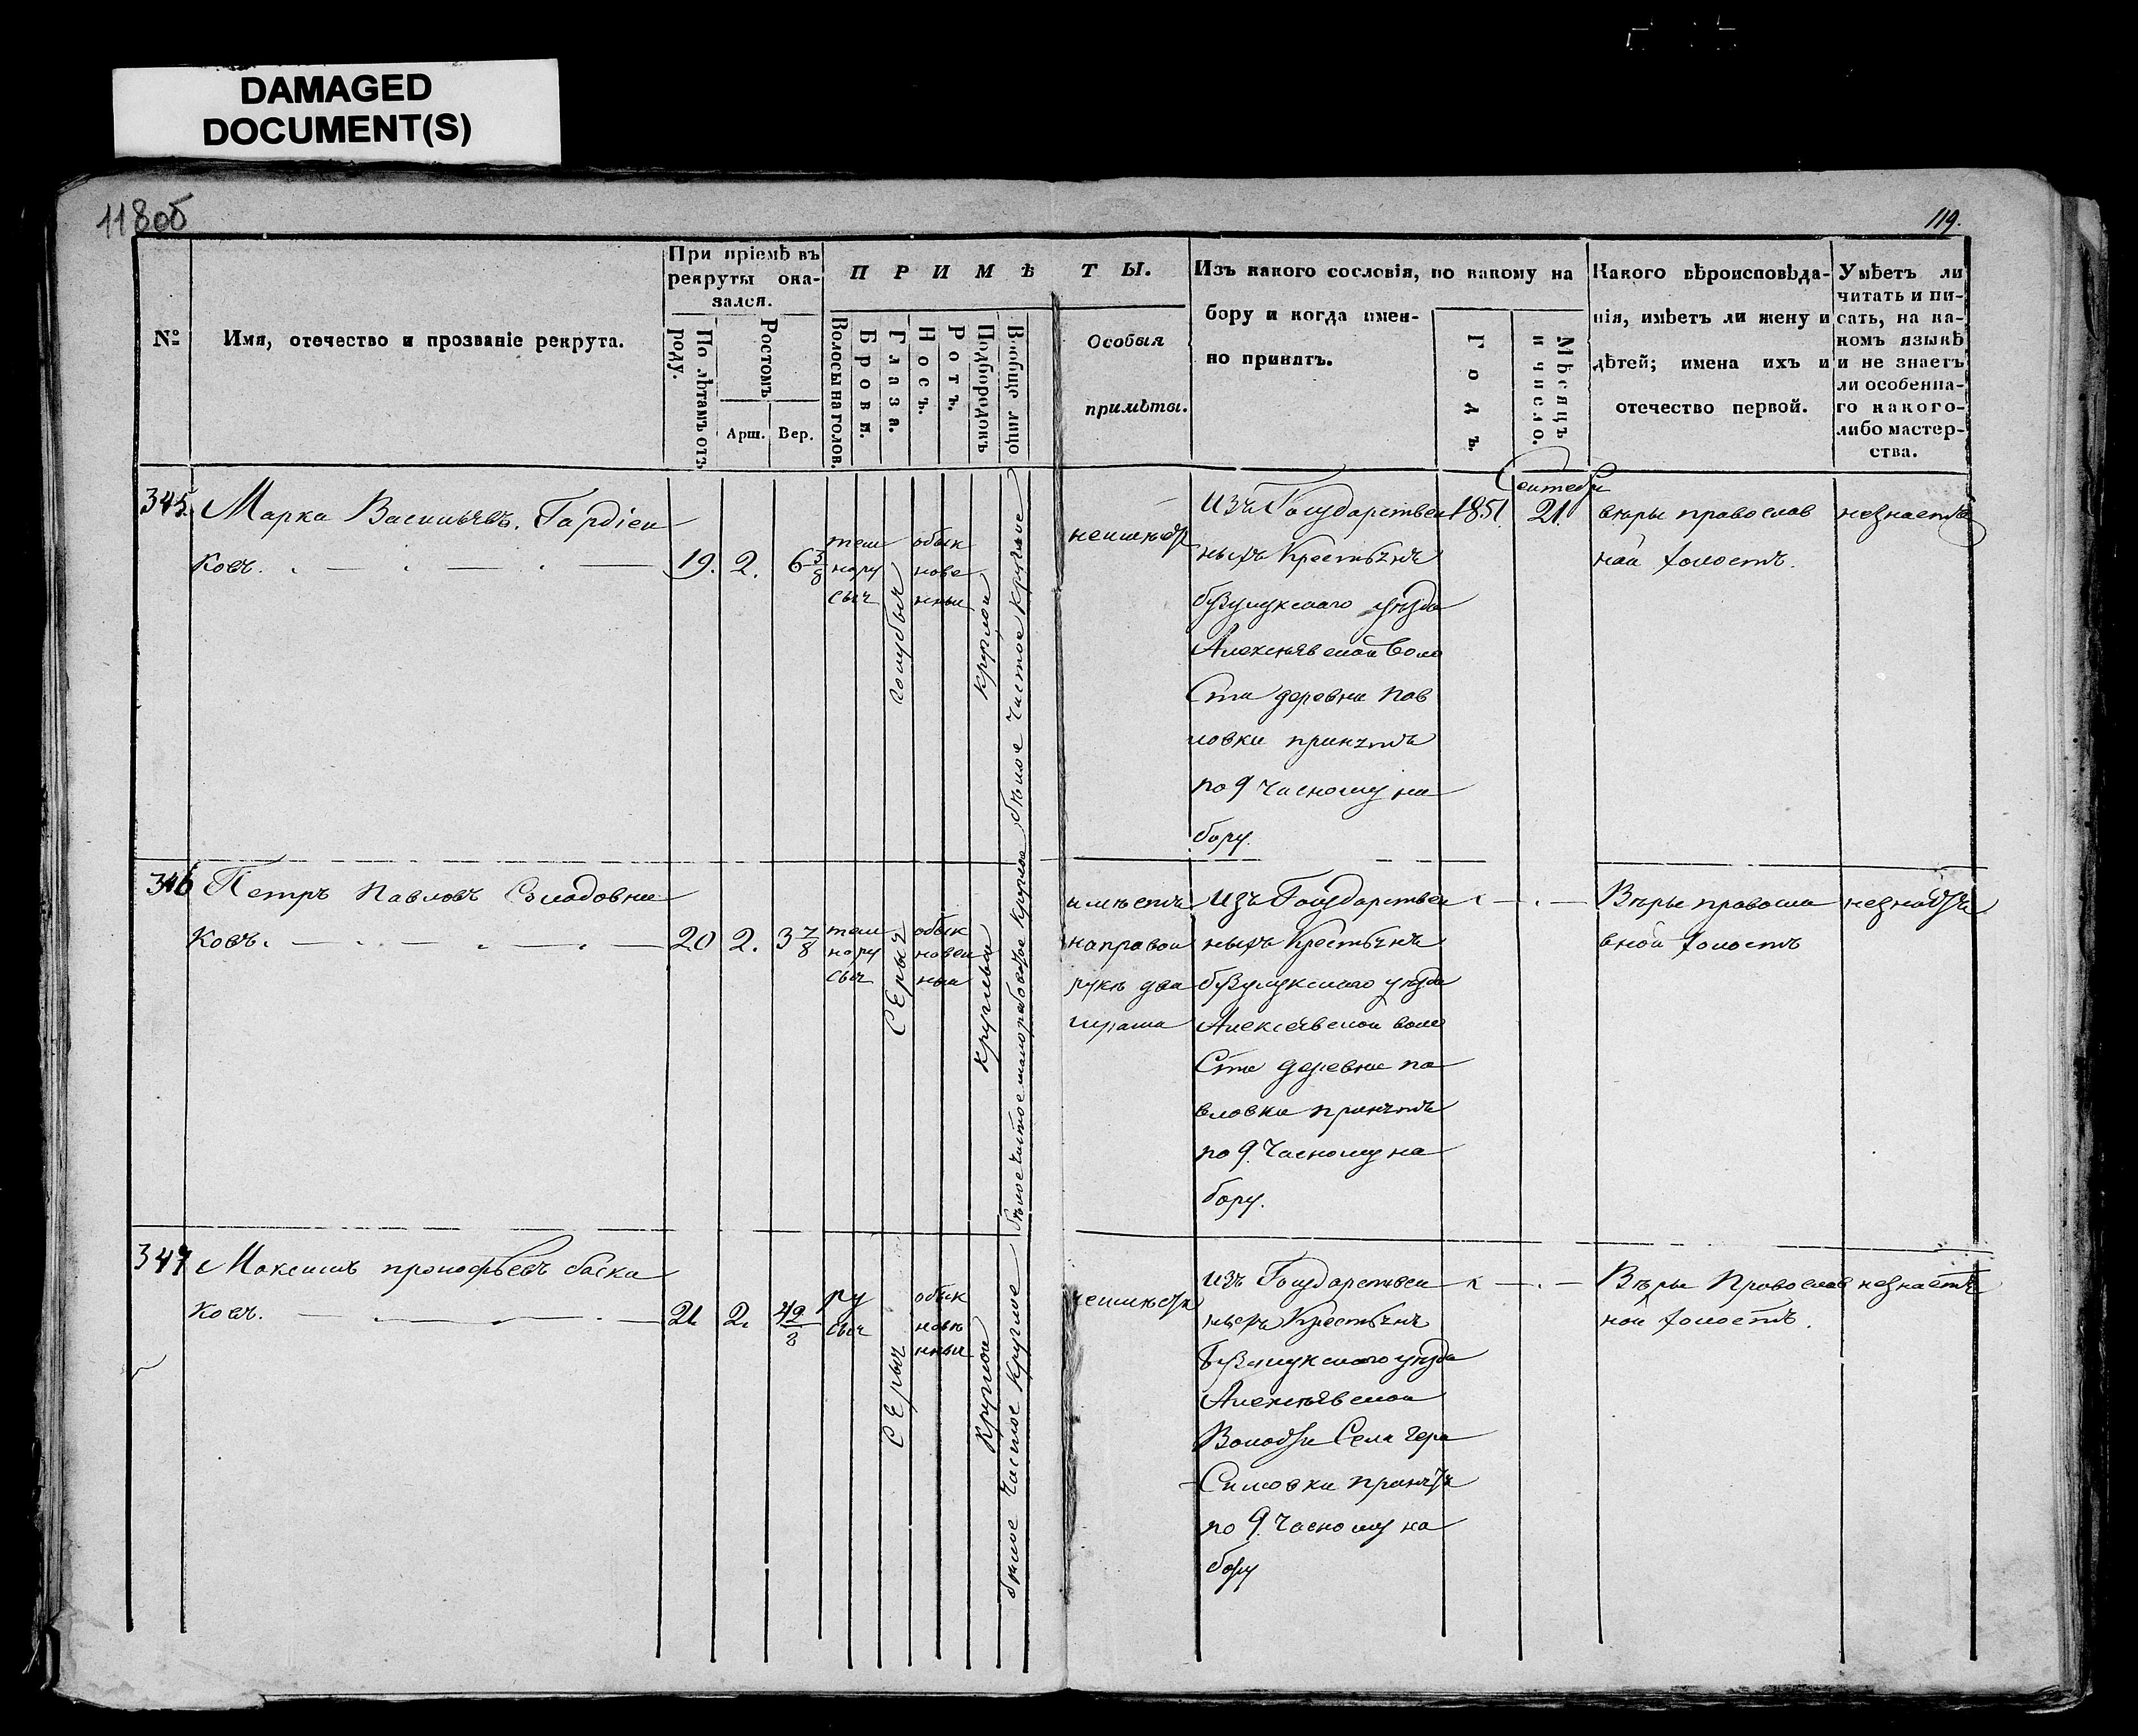 DAMAGED
DOCUMENT(S)
118об
119.
№
Имя, отечество и прозваніе рекрута.
При пріемѣ въ
рекруты ока-
зался.
По лѣтамъ отъ
роду.
Ростомъ
Арш.
Вер.
ПРИМѢТЫ.
Волосы на голов.
Брови.
Глаза.
Носъ.
Ротъ.
Подбородокъ
Вообще лицо
Особыя
примѣты.
Изъ какого сословія, по какому на
бору и когда имен-
но принятъ.
Годъ.
Мѣсяцъ
и число.
Какого вѣроисповѣда-
нія, имѣетъ ли жену и
дѣтей; имена ихъ и
отечество первой.
Умѣетъ ли
читать и пи-
сать, на ка-
комъ языкѣ
и не знаетъ
ли особенна-
го какого-
либо мастер-
ства.
345. Марка Васильевъ. Гордіен
ковъ.
19. 2. 6 3/8
тем
нору
сыя
голубыя
обык
нове
нный
круглой
бѣлое чистое круглое
неимѣетъ
Изъ Государствен
ныхъ Крестьянъ
бузулукскаго уѣзда
Алексѣевской воло
сти деревни Пав
ловки принятъ
по 9 часному на
бору.
1851.
Сентября
21.
вѣры православ
ной холостъ.
незнаетъ
346 Петръ Павловъ Солодовни
ковъ.
20 2. 3 7/8
тем
нору
сыя
Серыя
обык
новен
ный
Круглый
бѣлое чистое малорябоватое круглое
имѣетъ
направой
рукѣ два
шрама
Изъ Государствен
ныхъ Крестьянъ
бузулукскаго уѣзда
Алексѣевской воло
сти деревни па
вловки принятъ
по 9. Часному на
бору.
Вѣры правосла
вной холостъ
незнаетъ
347 Максимъ прокофьевъ баска
ковъ.
21. 2. 4 2/8
ру
сыя
Серыя
обык
новѣ
нный
Круглой
бѣлое чистое Круглое
неимѣетъ
изъ Государствен
ныхъ Крестьянъ
Бузулукскаго уѣзда
Алексѣевской
Волости Села Гера
симовки принятъ
по 9. Часному на
бору
Вѣры Православ
ной холостъ.
незнаетъ